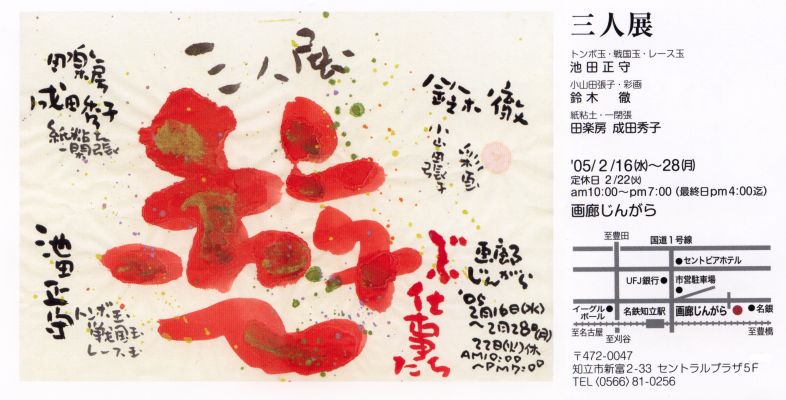 三人展
田楽房
成田秀子
紙粘土
一閑張
鈴木 徹
彩画
小山田張子
池田正守
トンボ玉
戦国玉
レース玉
仕事たち
画廊
じんがら
'05
2月16日(水)
〜2月28日(月)
22日(火)休
AM10:00
〜PM7:00
三人展
トンボ玉・戦国玉・レース玉
池田正守
小山田張子・彩画
鈴木 徹
紙粘土・一閑張
田楽房 成田秀子
'05/2/16(水)〜28(月)
定休日 2/22(火)
am10:00〜pm7:00(最終日pm4:00迄)
画廊じんがら
至豊田
国道1号線
セントピアホテル
UFJ銀行
市営駐車場
イーグルボール
名鉄知立駅
画廊じんがら
名銀
至名古屋
至刈谷
至豊橋
〒472-0047
知立市新富2-33 セントラルプラザ5F
TEL(0566)81-0256